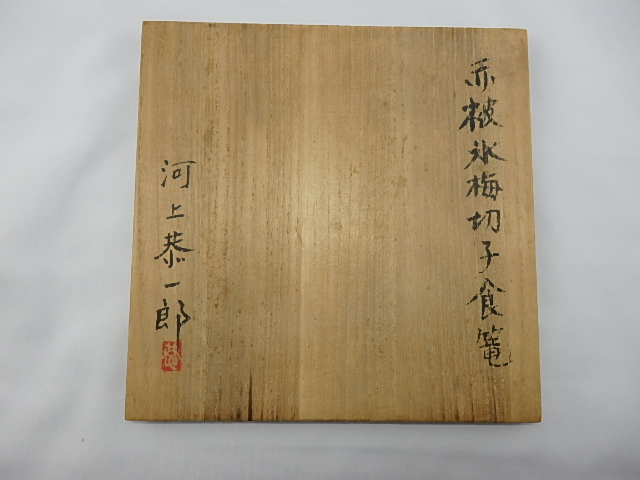 赤被氷梅切子食篭
河上恭一郎